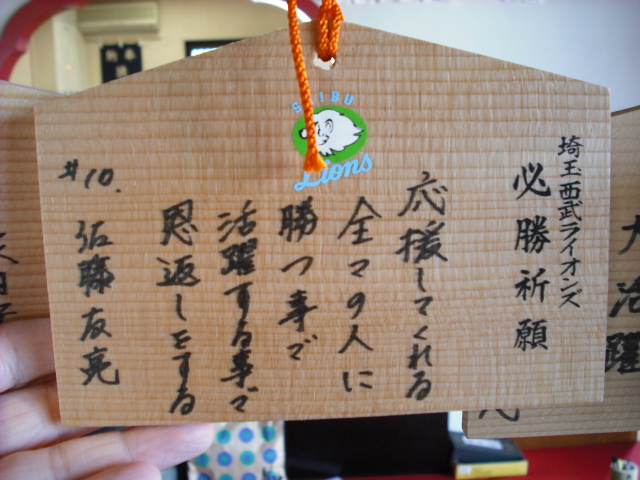 SEIBU
Lions
埼玉西武ライオンズ
必勝祈願
応援してくれる
全々の人に
勝つ事で
活躍する事で
恩返しをする
#10.
佐藤友亮
大活躍